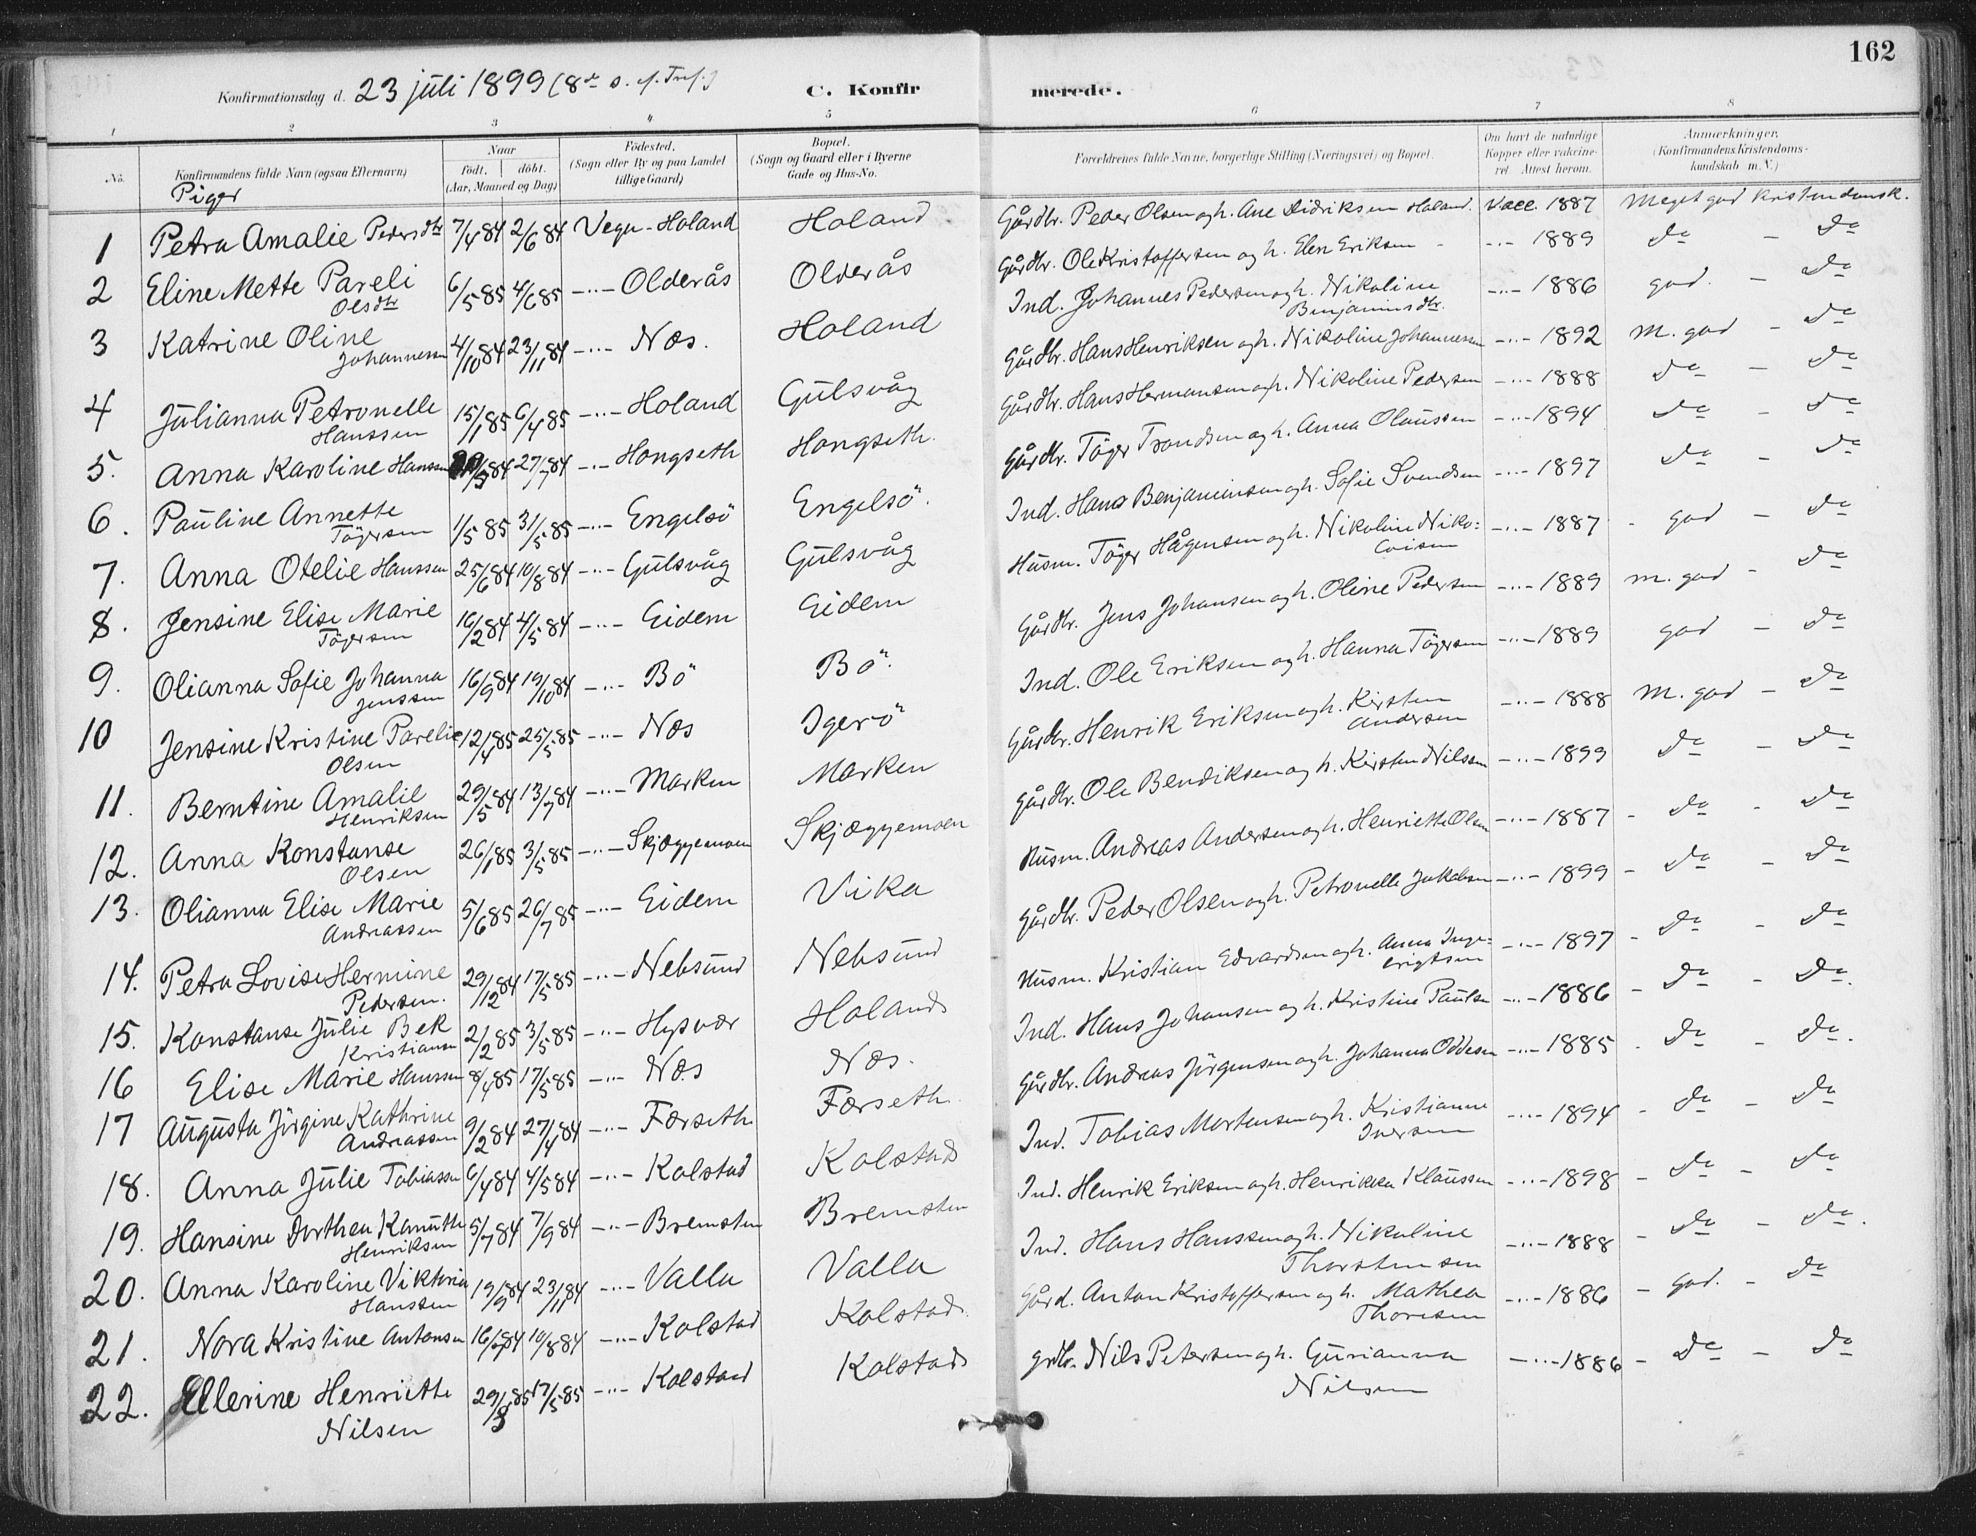 162
Konfirmationsdag d. 23 juli 1899 (8de s. e. Tref.)
C. Konfirmerede.
1 2 3 4 5 6 7 8
No. Konfirmandens fulde Navn (ogsaa Efternavn) Naar födt. döbt. (Aar, Maaned og Dag) Födested. (Sogn eller By og paa Landet tillige Gaard) Bopæl. (Sogn og Gaard eller i Byerne Gade og Hus-No. Forældrenes fulde Navne, borgerlige Stilling (Næringsvei) og Bopæl. Om havt de naturlige Kopper eller vakcineret. Attest herom. Anmærkninger. (Konfirmandens Kristendomskundskab m. V.)
Piger
1 Petra Amalie Pedersdtr 7/4 84 2/6 84 Vega - Holand Holand Gårdbr. Peder Olsen og h. Ane Didriksen Holand. Vacc. 1887 Meget god Kristendomsk.
2 Eline Mette Pareli Olsdtr 6/5 85 4/6 85 -"- Olderås Olderås Gårdbr. Ole Kristoffersen og h. Elen Eriksen -"- 1889 do - do
3 Katrine Oline Johannessen 4/10 84 23/11 84 -"- Næs. Holand Ind. Johannes Pedersen og h. Nikoline Benjaminsdtr. -"- 1886 god. - do
4 Julianna Petronelle Hanssen 15/1 85 6/4 85 -"- Holand Gulsvåg Gårdbr. Hans Henriksen og h. Nikoline Johannessen -"- 1892 M. god - do
5. Anna Karoline Hanssen /5 84 27/7 84 -"- Hongseth Hongseth. Gårdbr. Hans Hermansen og h. Nikoline Pedersen -"- 1888 do - do
6. Pauline Annette Tögersen 1/5 85 31/5 85 -"- Engelsö Engelsö. Gårdbr. Töger Trondsen og h. Anna Olaussen -"- 1894 do - do
7. Anna Otelie Hanssen 25/6 84 10/8 84 -"- Gulsvåg Gulsvåg Ind. Hans Benjaminsen og h. Sofie Svendsen -"- 1897 do - do
8. Jensine Elise Marie Tögersen 16/2 84 4/5 84 -"- Eidem Eidem Husm. Töger Hågensen og h. Nikoline Nikoloisen -"- 1887 - god - do
9. Olianna Sofie Johanna Jenssen 16/9 84 19/10 84 -"- Bö Bö. Gårdbr. Jens Johansen og h. Oline Pedersen -"- 1889 m. god - do
10 Jensine Kristine Parelie Olsen 12/4 85 25/5 85 -"- Næs Igerö Ind. Ole Eriksen og h. Hanna Tögersen -"- 1889 god - do
11. Berntine Amalie Henriksen 29/5 84 13/7 84 -"- Marken Marken Gårdbr. Henrik Eriksen og h. Kirsten Andersen -"- 1888 M. god - do
12. Anna Konstanse Olsen 26/1 85 3/5 85 -"- Skjæggemoen Skjæggemoen Gårdbr. Ole Bendiksen og h. Kirsten Nilssen -"- 1899 do - do
13. Olianna Elise Marie Andreassen 5/6 85 26/7 85 -"- Eidem Vika Husm. Andreas Andersen og h. Henriette Olsen -"- 1887 - do - do
14. Petra Lovise Hermine Pedersen. 29/12 84 17/5 85 -"- Nebsund Nebsund Gårdbr. Peder Olsen og h. Petronelle Jakobsen -"- 1899 - do - do
15. Konstanse Julie Bek Kristiansen 2/2 85 3/5 85 -"- Hysvær Holands Husm. Kristian Edvardsen og h. Anna Ingebrigtsen -"- 1897 - do - do
16 Elise Marie Hanssen 8/4 85 17/5 85 -"- Næs Næs. Ind. Hans Johansen og h. Kristine Paulsen -"- 1886 - do - do.
17 Augusta Jörgine Kathrine Andreassen 9/2 84 27/4 84 -"- Færseth Færseth. Gårdbr. Andreas Jörgensen og h. Johanna Oddesen -"- 1885 - do - do.
18. Anna Julie Tobiassen 6/4 84 4/5 84 -"- Kolstad Kolstad Ind. Tobias Mortensen og h. Kristianne Iversen -"- 1894 - do - do
19. Hansine Dorthea Kanutte Henriksen 5/7 84 7/9 84 -"- Bremsten Bremsten Ind. Henrik Eriksen og h. Henrikka Klaussen -"- 1898 - do - do
20. Anna Karoline Viktoria Hanssen 19/9 84 23/11 84 -"- Valla Valla Ind. Hans Hanssen og h. Nikoline Thorstensen -"- 1888 - do - do.
21. Nora Kristine Antonsen 16/ 84 10/8 84 -"- Kolstad Kolstad. Gård. Anton Kristoffersen og h. Mathea Thoresen -"- 1886 - god. - do
22. Ellerine Henriette Nilsen 29/3 85 17/5 85 -"- Kolstad Kolstad grdbr. Nils Petersen og h. Gurianna Nilsen -"- 1886 - do - do